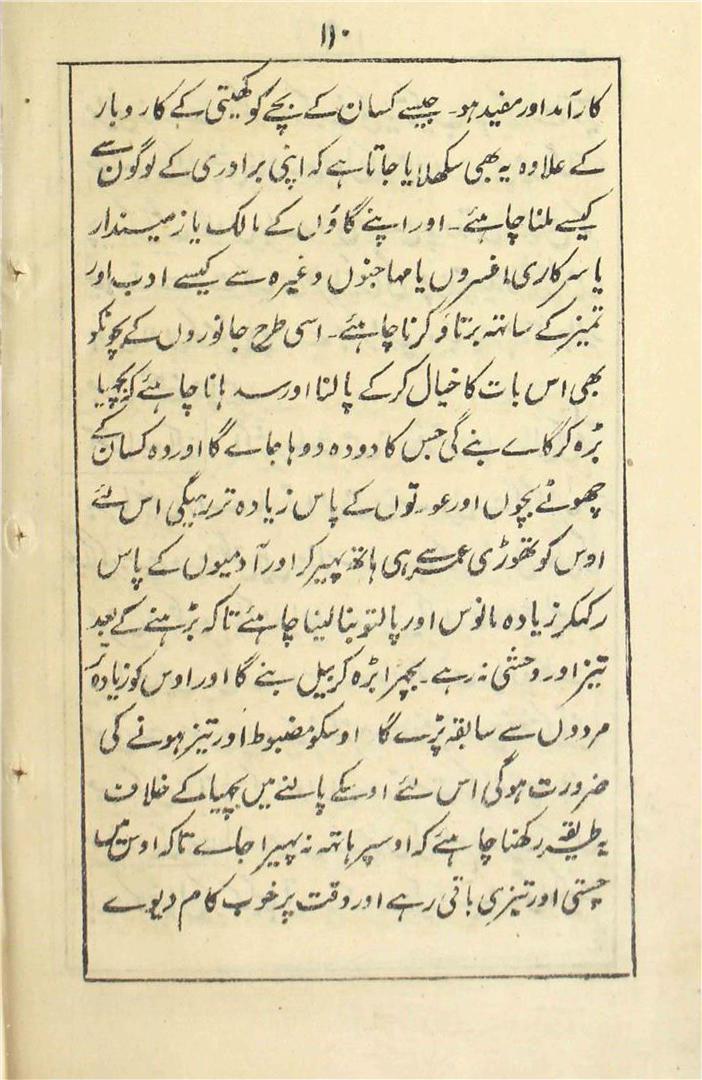 ۱۱۰
کارآمد اور مفید ہو۔ جیسے کسان کے بچے کو کھیتی کے کاروبار
کے علاوہ یہ بھی سکھلایا جاتا ہے کہ اپنی برادری کے لوگون سے
کیسے ملنا چاہئے۔ اور اپنے گاؤں کے مالک یا زمیندار
یا سرکاری افسروں یا مہاجنوں وغیرہ سے کیسے ادب اور
تمیز کے ساتہ برتاؤ کرنا چاہئے۔ اسی طرح جانوروں کے بچونکو
بھی اس بات کا خیال کرکے پالنا اور سدہانا چاہئے کہ بچھیا
بڑہ کر گاے بنے گی جس کا دودہ دوہا جاے گا اور وہ کسان کے
چھوٹے بچوں اور عورتوں کے پاس زیادہ تر رہیگی اس لئے
اوس کو تھوڑی عمر سے ہی ہاتھ پہیر کر اور آدمیوں کے پاس
رکہکر زیادہ مانوس اور پالتو بنا لینا چاہئے تاکہ بڑہنے کے بعد
تیز اور وحشی نہ رہے۔ بچھڑا بڑہ کر بیل بنے گا اور اوس کو زیادہ تر
مردوں سے سابقہ پڑے گا اوسکو مضبوط اور تیز ہونے کی
ضرورت ہوگی اس لئے اوسکے پالنے میں بچھیا کے خلاف
یہ طریقہ رکہنا چاہئے کہ اوسپر ہاتہ نہ پہیرا جاے تاکہ اوس میں
چستی اور تیزی باقی رہے اور وقت پر خوب کام دیوے